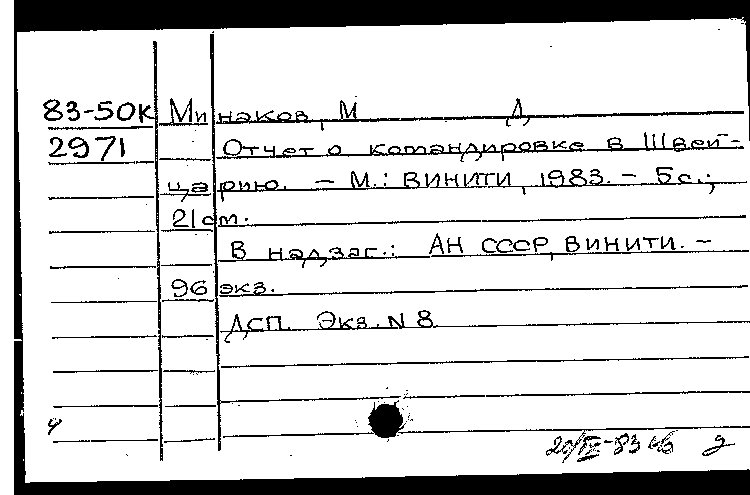 83-50К Минаков, М Д
2971 Отчет о командировке в Швей-
царию. – М.: ВИНИТИ, 1983. – 5с.;
21 cm.
В надзаг.: АН СССР, ВИНИТИ. –
96 экз.
ДСП. Экз. N 8
20/IV-83